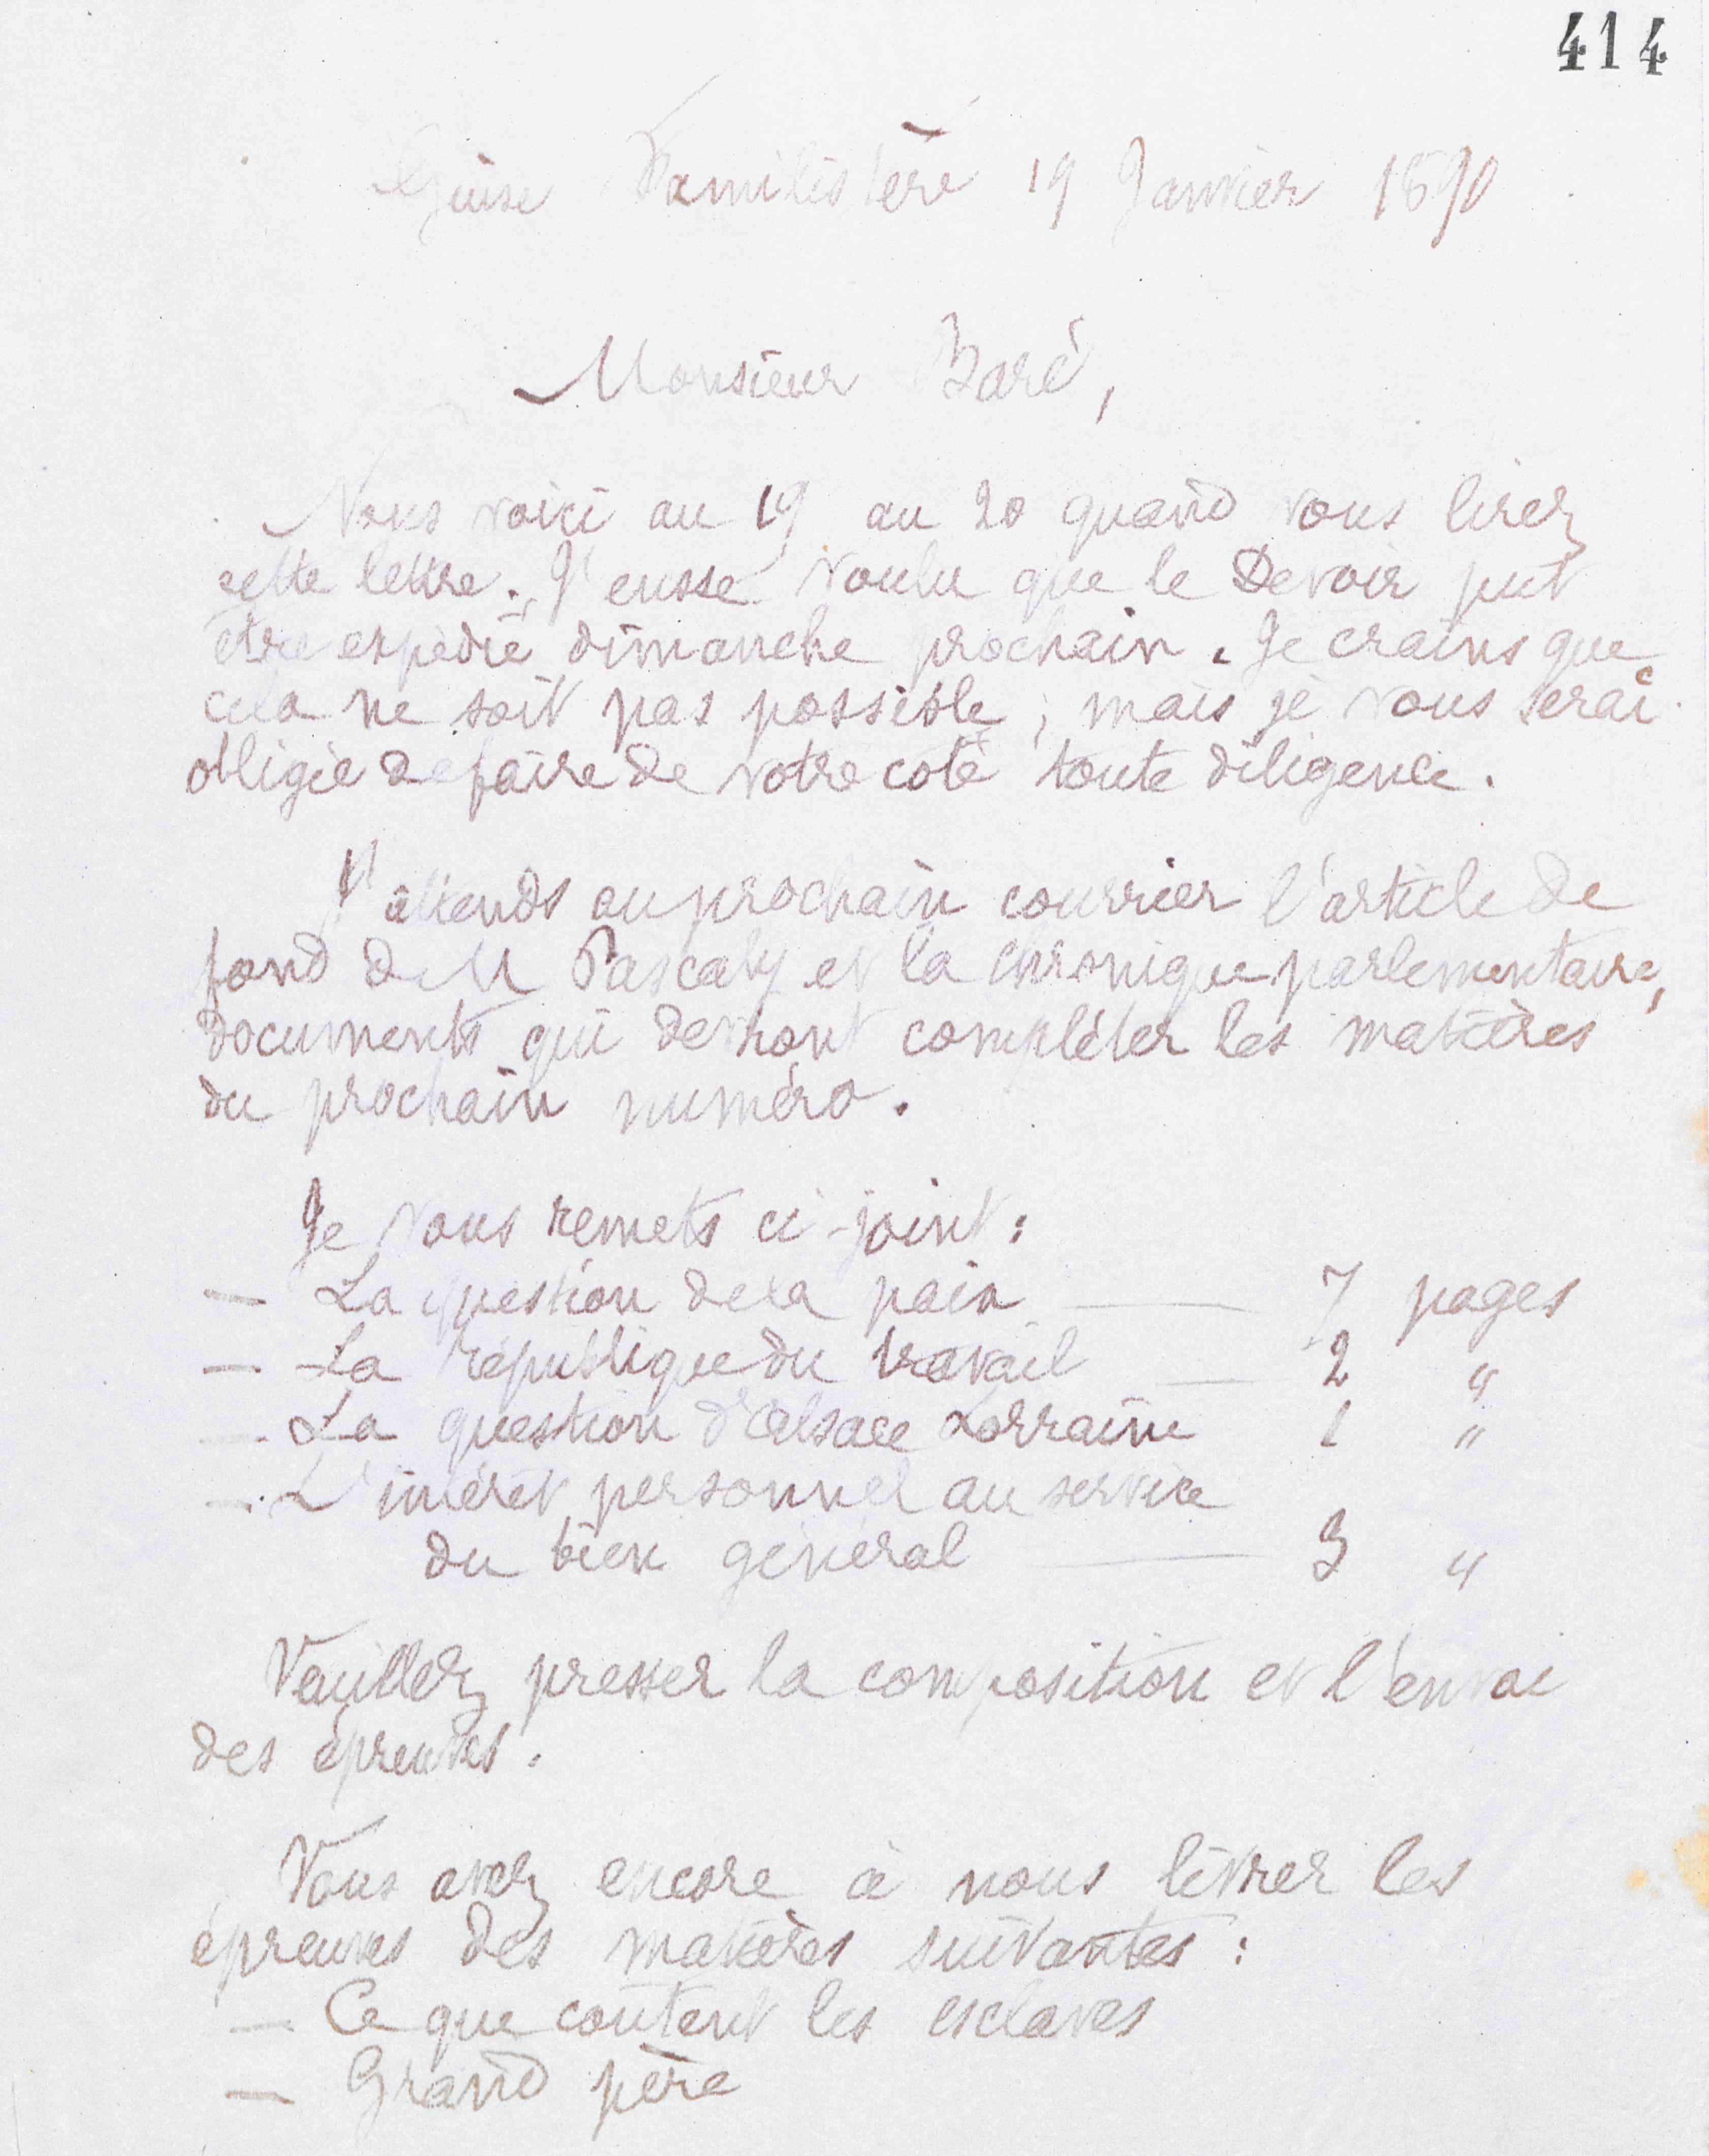 414
Guise Familistère 19 Janvier 1890
Monsieur Baré,
Nous voici au 19 au 20 quand vous lirez
cette lettre. J'eusse voulu que le Devoir put
être expédié dimanche prochain. Je crains que
cela ne soit pas possible ; mais je vous serai
obligée de faire de votre côté toute diligence.
J'attends au prochain courrier l'article de
fond de M Pascaly et la chronique parlementaire,
documents qui devront compléter les matières
du prochain numéro.
Je vous remets ci-joint :
— La question de la paix — 7 pages
— La république du travail — 2 "
— La question d'Alsace Lorraine 1 "
— L'intérêt personnel au service
du bien général — 3 "
Veuillez presser la composition et l'envoi
des épreuves.
Vous avez encore à nous livrer les
épreuves des matières suivantes :
— Ce que coûtent les esclaves
— Grand père